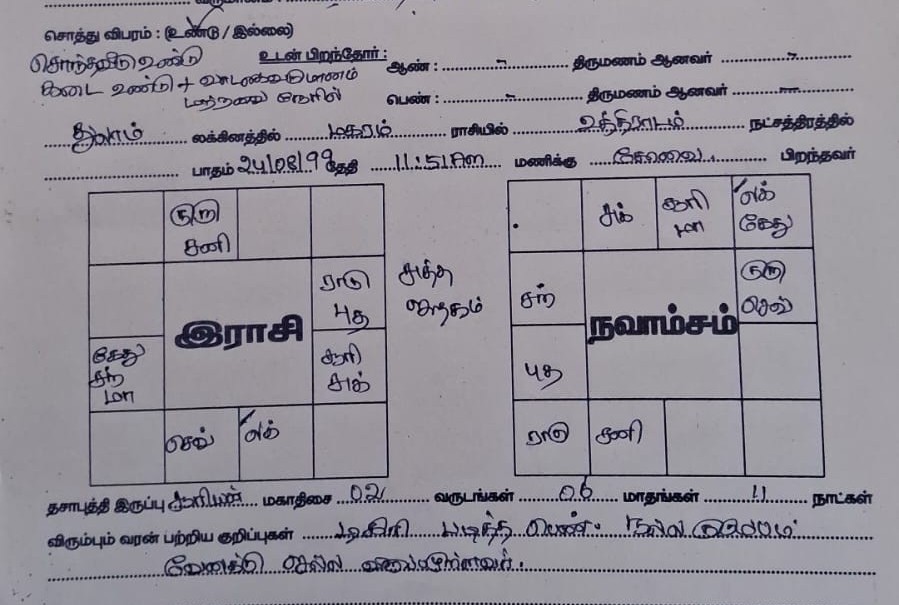 சொத்து விபரம் : (உண்டு / இல்லை)
சொந்தவீடு உண்டு உடன் பிறந்தோர் :
கடை உண்டு + வாடகை வருமானம் ஆண் : - திருமணம் ஆனவர் -
மற்றவை நேரில் பெண் : - திருமணம் ஆனவர் -
துலாம் லக்கினத்தில் மகரம் ராசியில் உத்திராடம் நட்சத்திரத்தில்
பாதம் 24/08/99 தேதி 11:51 AM மணிக்கு கோவை பிறந்தவர்
குரு
சனி
ராகு
புத
இராசி
கேது
சந்
மா
சூரி
சுக்
செவ் லக்
சுத்த
ஜாதகம்
சுக் சூரி
மா
லக்
கேது
சந் குரு
செவ்
நவாம்சம்
புத
ராகு சனி
தசாபுத்தி இருப்பு சூரியன் மகாதிசை 02 வருடங்கள் 06 மாதங்கள் 11 நாட்கள்
விரும்பும் வரன் பற்றிய குறிப்புகள் டிகிரி படித்த பெண். நல்ல குடும்பம்
வேலைக்கு செல்ல